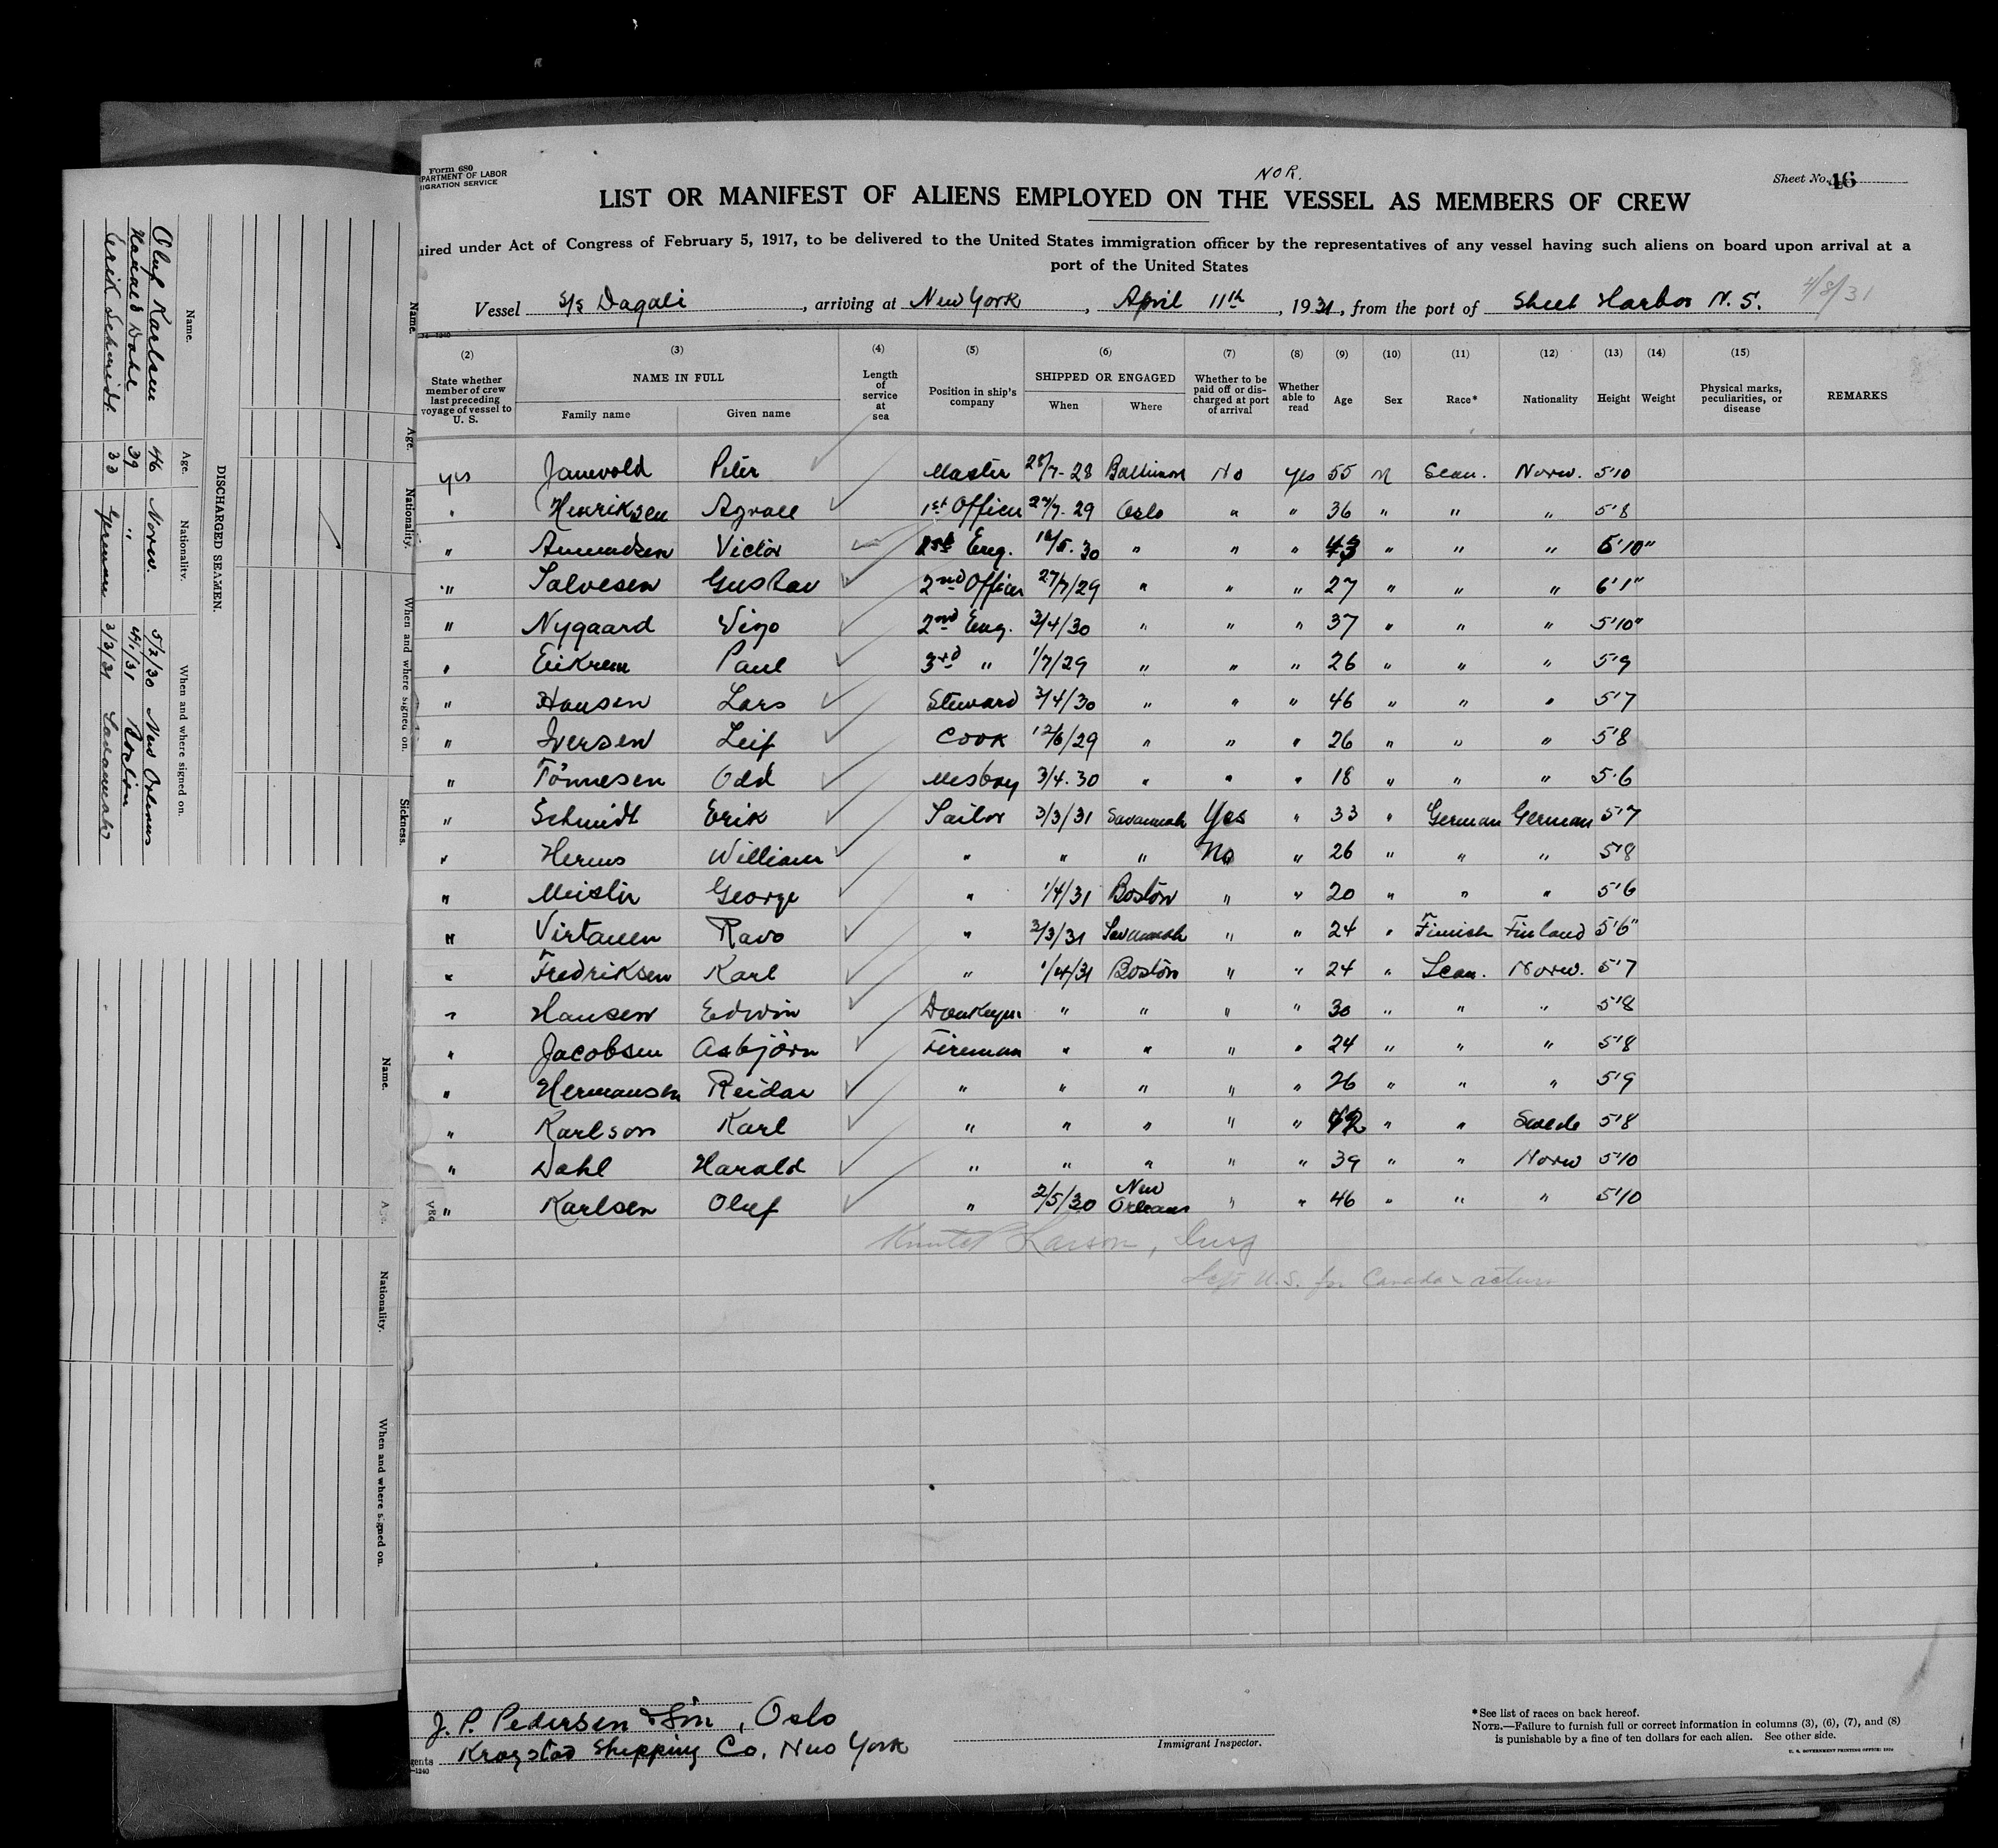 Form 680
PARTMENT OF LABOR
IGRATION SERVICE
NOR.
Sheet No. 16
LIST OR MANIFEST OF ALIENS EMPLOYED ON THE VESSEL AS MEMBERS OF CREW
uired under Act of Congress of February 5, 1917, to be delivered to the United States immigration officer by the representatives of any vessel having such aliens on board upon arrival at a
port of the United States
4/8/31
Vessel S/s Dagali, arriving at New York, April 11th, 1931, from the port of Sheet Harbor N. S.
(2) (3) (4) (5) (6) (7) (8) (9) (10) (11) (12) (13) (14) (15)
State whether member of crew last preceding voyage of vessel to U. S. NAME IN FULL Family name Given name Length of service at sea Position in ship's company SHIPPED OR ENGAGED When Where Whether to be paid off or discharged at port of arrival Whether able to read Age Sex Race* Nationality Height Weight Physical marks, peculiarities, or disease REMARKS
yes Peter Master 28/7-28 No Yes 55 M Scan. Norw. 5'10
" Henriksen 1st Officer 29 Oslo " " 36 " " " 5'8
" Amundsen Victor Eng. 30 " " " 43 " " " 5'10"
" Salvesen Gustav 2nd Officer 27/7/29 " " " 27 " " " 6'1"
" Nygaard Vigo 2nd Eng. 3/4/30 " " " 37 " " " 5'10"
" Eikrem Paul 3rd " 1/7/29 " " " 26 " " " 5'9
" Hansen Lars Steward 3/4/30 " " " 46 " " " 5'7
" Iversen Leif Cook 12/6/29 " " " 26 " " " 5'8
" Tönnesen Odd Mesboy 3/4.30 " " " 18 " " " 5'6
" Schmidt Erik Sailor 3/3/31 Savannah Yes " 33 " German German 5'7
" William " " " No " 26 " " " 5'8
" George " 1/4/31 Boston " " 20 " " " 5'6
" Virtanen " 3/3/31 Savannah " " 24 " Finish Finland 5'6"
" Fredriksen Karl " 1/4/31 Boston " " 24 " Scan. Norw. 5'7
" Hansen Edwin " " " " 30 " " " 5'8
" Jacobsen Asbjörn Fireman " " " " 24 " " " 5'8
" Hermansen Reidar " " " " " 26 " " " 5'9
" Karlson Karl " " " " " 42 " " Swede 5'8
" Dahl Harald " " " " " 39 " " Norw 5'10
" Karlsen Oluf " 2/5/30 New Orleans " " 46 " " " 5'10
Larson, Insp
Left U.S. for Canada & return
J. P. Pedersen & Sön, Oslo
gents Kragstad Shipping Co, New York
Immigrant Inspector.
*See list of races on back hereof.
NOTE.—Failure to furnish full or correct information in columns (3), (6), (7), and (8)
is punishable by a fine of ten dollars for each alien. See other side.
U. S. GOVERNMENT PRINTING OFFICE
DISCHARGED SEAMEN.
Name. Age. Nationality. When and where signed on.
Oluf Karlsen 46 Norw. 5/2/30 New Orleans
Harald Dahl 39 " Boston
Erik Schmidt 33 German 3/3/31 Savannah
Name. Age. Nationality. When and where signed on. Sickness.
Name. Age. Nationality. When and where signed on.